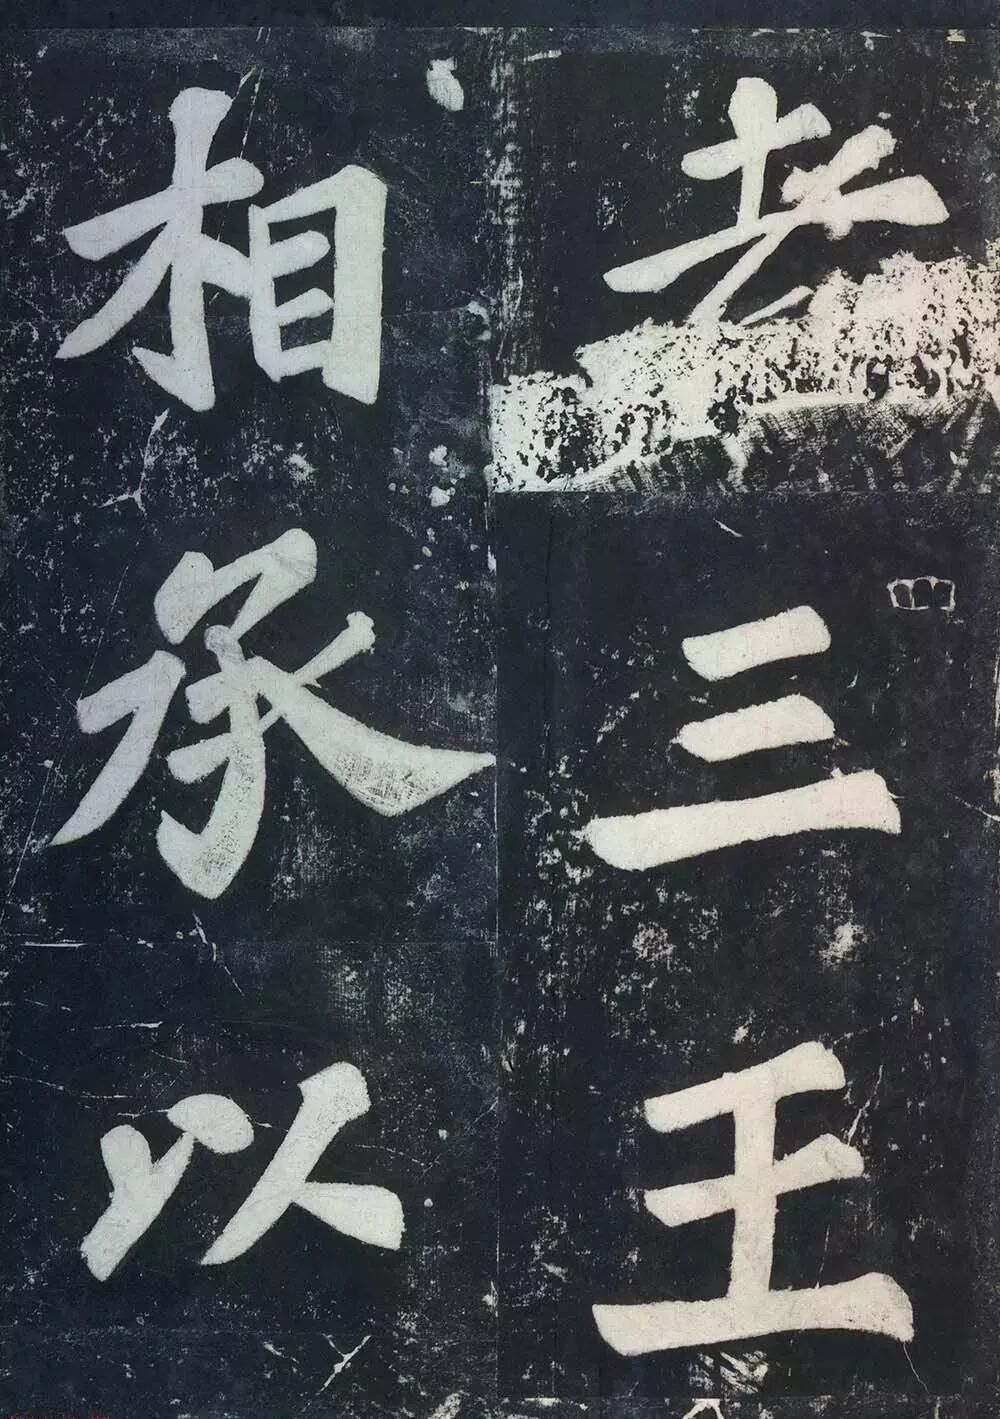 三王
相承以